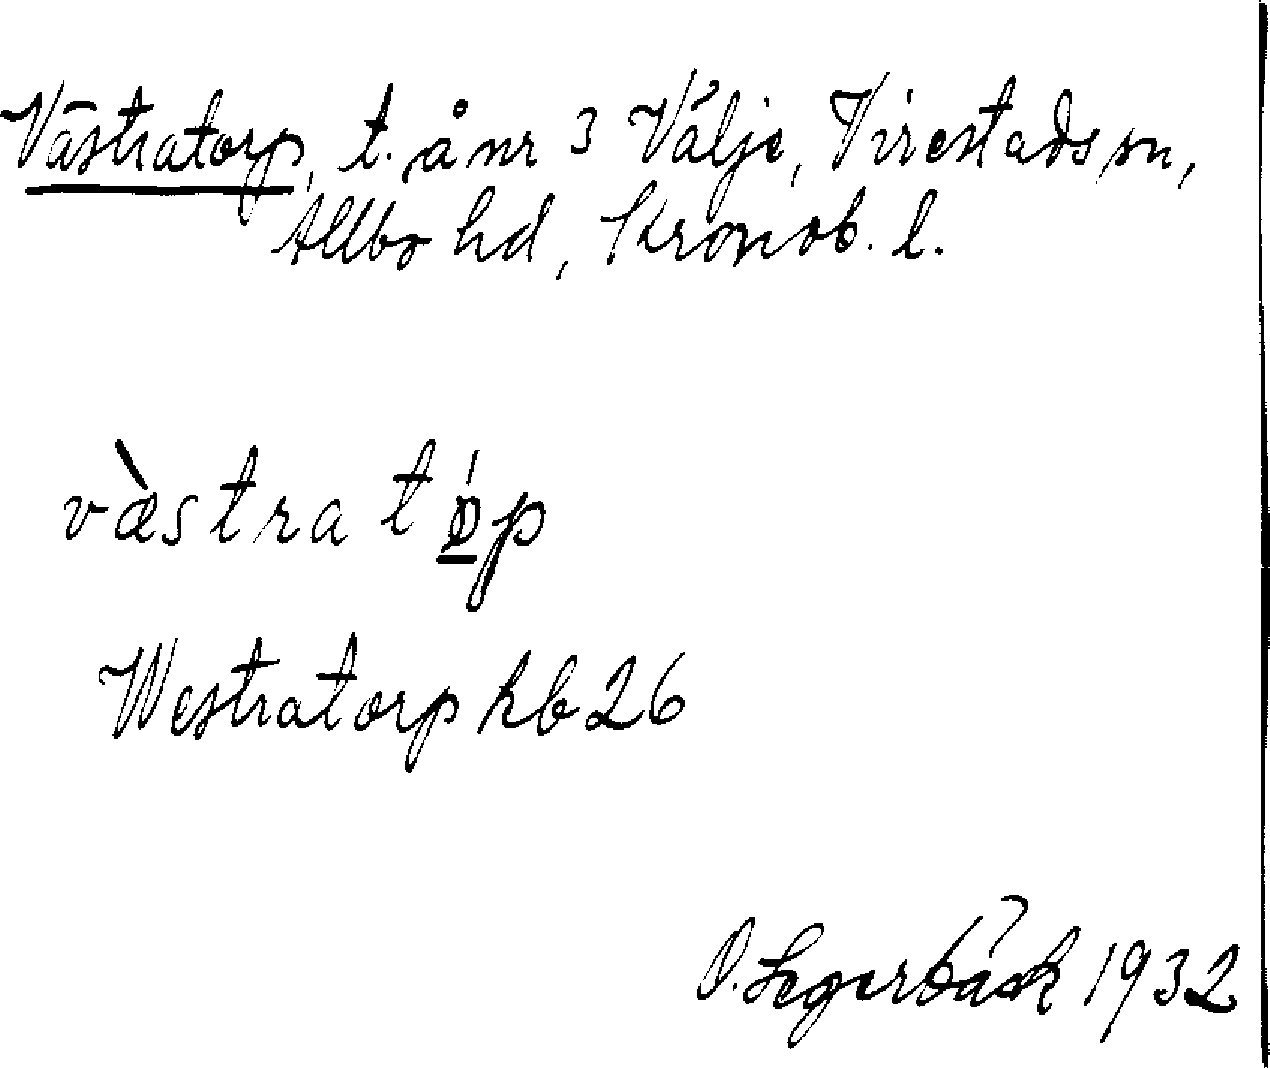 Västratorp, t. å nr 3 Välje, Virestads sn,
Allbo hd, Kronob. l.
vàstra tóp
Westratorp kb 26
O. Segerbäck 1932